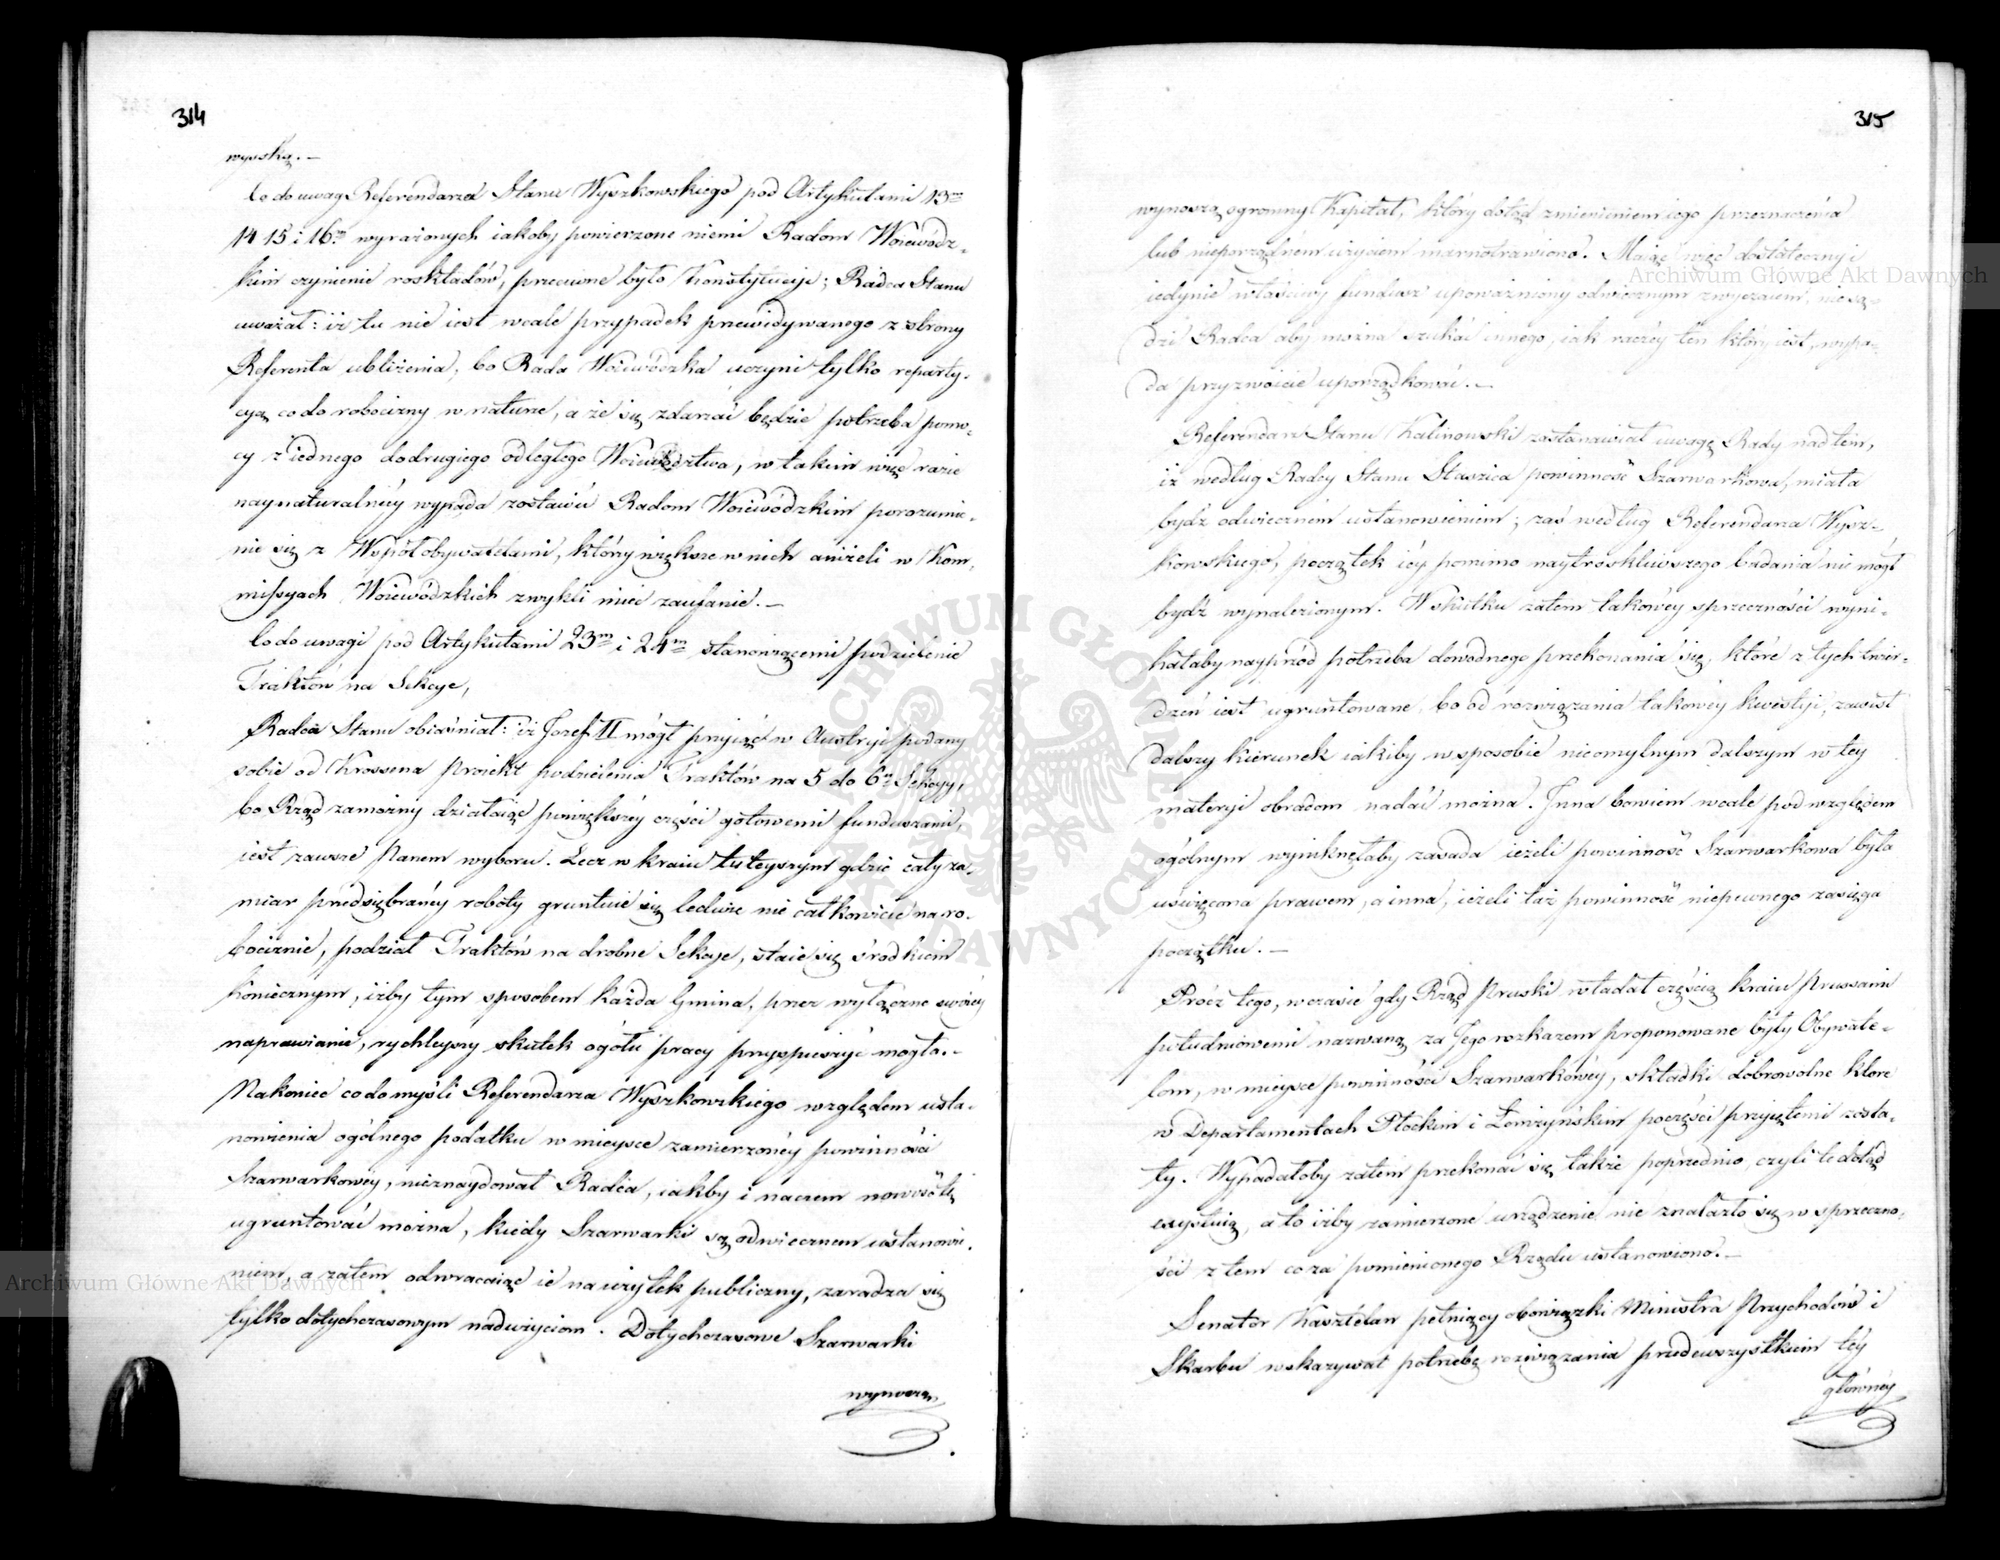 314
wyoską. —
Co do uwag Referendarza Stanu Wyszkowskiego pod Artykułami 13m
14 15 i 16m wyrażonych iakoby powierzone niemi Radom Woiewódz-
kim czynienie roskładów, przeciwne było Konstytucyi; Radca Stanu
uważał: iż tu nie iest wcale przypadek przewidywanego z strony
Referenta ubliżenia, bo Rada Woiewódzka uczyni tylko reparty-
cyą co do robocizny w naturze, a że się zdarzać będzie potrzeba pomo-
cy z iednego do drugiego odległego Woiewództwa, w takim więc razie
naynaturalniéy wypada zostawić Radom Woiewódzkim porozumie-
nie się z Współobywatelami, którzy większe w nich aniżeli w Kom-
missyach Woiewódzkich zwykli mieć zaufanie. —
Co do uwagi pod Artykułami 23m i 24m stanowiącemi podzielenie
Traktów na Sekcye,
Radca Stanu obiaśniał: iż Jozef II mógł przyiąć w Austryi podany
sobie od Krossena Proiekt podzielenia Traktów na 5 do 6m Sekcyy,
bo Rząd zamożny działaiąc powiększéy części gotowemi funduszami,
iest zawsze Panem wyboru. Lecz w kraiu tuteyszym gdzie cały za-
miar przedsiębranéy roboty gruntuie się ledwie nie całkowicie na ro-
bociznie, podział Traktów na drobne Sekcye, staie się środkiem
koniecznym, iżby tym sposobem każda Gmina, przez wyłączne swoiéy
naprawianie, rychleyszy skutek ogółu pracy przyspieszyć mogła. -
Nakoniec co do myśli Referendarza Wyszkowskiego względem usta-
nowienia ogólnego podatku w mieysce zamierzonéy powinności
Szarwarkowéy, nieznaydował Radca, iakby i na czem nowość tę
ugruntować można, kiedy Szarwarki są odwiecznem ustanowie-
niem, a zatem odwracaiąc ie na użytek publiczny, zaradza się
tylko dotychczasowym nadużyciom. Dotychczasowe Szarwarki
wynoszą
315
wynoszą ogromny Kapitał, który dotąd zmienieniem iego przeznaczenia
lub nieporządném użyciem marnotrawiono. Maiąc więc dostateczny i
iedynie właściwy fundusz upoważniony odwiecznym zwyczaiem, nie są-
dzi Radca aby można szukać innego, iak raczéy ten który iest, wypa-
da przyzwoicie uporządkować. —
Referendarz Stanu Kalinowski zastanawiał uwagę Rady nad tem,
iż według Radcy Stanu Staszica powinność Szarwarkowa, miała
bydź odwieczném ustanowieniem; zaś według Referendarza Wysz-
kowskiego, początek iéy pomimo naytroskliwszego badania nie mógł
bydź wynalezionym. W skutku zatem takowéy sprzeczności wyni-
kałaby nayprzód potrzeba dowodnego przekonania się, które z tych twier-
dzeń iest ugruntowane, bo od rozwiązania takowéy kwestyi, zawisł
dalszy kierunek iakiby w sposobie nieomylnym dalszym w téy
materyi obradom nadać można. Inna bowiem wcale pod względem
ogólnym wyniknęłaby zasada ieżeli powinność Szarwarkowa była
uświęcona prawem, a inna, ieżeli taż powinność niepewnego zasięga
początku. —
Prócz tego, w czasie gdy Rząd Pruski władał częścią kraiu Prussami
południowemi nazwaną za Jego rozkazem proponowane były Obywate-
lom, w mieysce powinności Szarwarkowéy, składki dobrowolne które
w Departamentach Płockim i Łomżyńskim poczęści przyiętemi zosta-
ły. Wypadałoby zatem przekonać się także poprzednio, czyli te dotąd
exystuią, a to iżby zamierzone urządzenie nie znalazło się w sprzeczno-
ści z tem co za pomienionego Rządu ustanowiono. —
Senator Kasztelan pełniący obowiązki Ministra Przychodów i
Skarbu wskazywał potrzebę rozwiązania przedewszystkiem téy
głównéy
Archiwum Główne Akt Dawnych
Archiwum Główne Akt Dawnych
ARCHIWUM GŁÓWNE AKT DAWNYCH